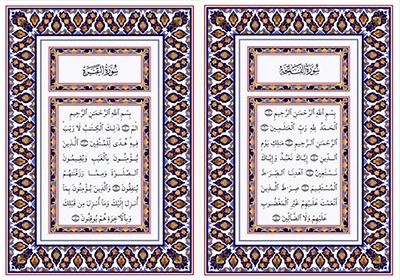 سُورَةُ الفَاتِحَةِ
بِسْمِ ٱللَّهِ ٱلرَّحْمَٰنِ ٱلرَّحِيمِ
ٱلْحَمْدُ لِلَّهِ رَبِّ ٱلْعَٰلَمِينَ
ٱلرَّحْمَٰنِ ٱلرَّحِيمِ مَٰلِكِ يَوْمِ
ٱلدِّينِ إِيَّاكَ نَعْبُدُ وَإِيَّاكَ
نَسْتَعِينُ ٱهْدِنَا ٱلصِّرَٰطَ
ٱلْمُسْتَقِيمَ صِرَٰطَ ٱلَّذِينَ
أَنْعَمْتَ عَلَيْهِمْ غَيْرِ ٱلْمَغْضُوبِ
عَلَيْهِمْ وَلَا ٱلضَّآلِّينَ
سُورَةُ البَقَرَةِ
بِسْمِ ٱللَّهِ ٱلرَّحْمَٰنِ ٱلرَّحِيمِ
الٓمٓ ذَٰلِكَ ٱلْكِتَٰبُ لَا رَيْبَ
فِيهِ هُدًى لِّلْمُتَّقِينَ ٱلَّذِينَ
يُؤْمِنُونَ بِٱلْغَيْبِ وَيُقِيمُونَ
ٱلصَّلَوٰةَ وَمِمَّا رَزَقْنَٰهُمْ
يُنفِقُونَ وَٱلَّذِينَ يُؤْمِنُونَ بِمَآ
أُنزِلَ إِلَيْكَ وَمَآ أُنزِلَ مِن قَبْلِكَ
وَبِٱلْءَاخِرَةِ هُمْ يُوقِنُونَ